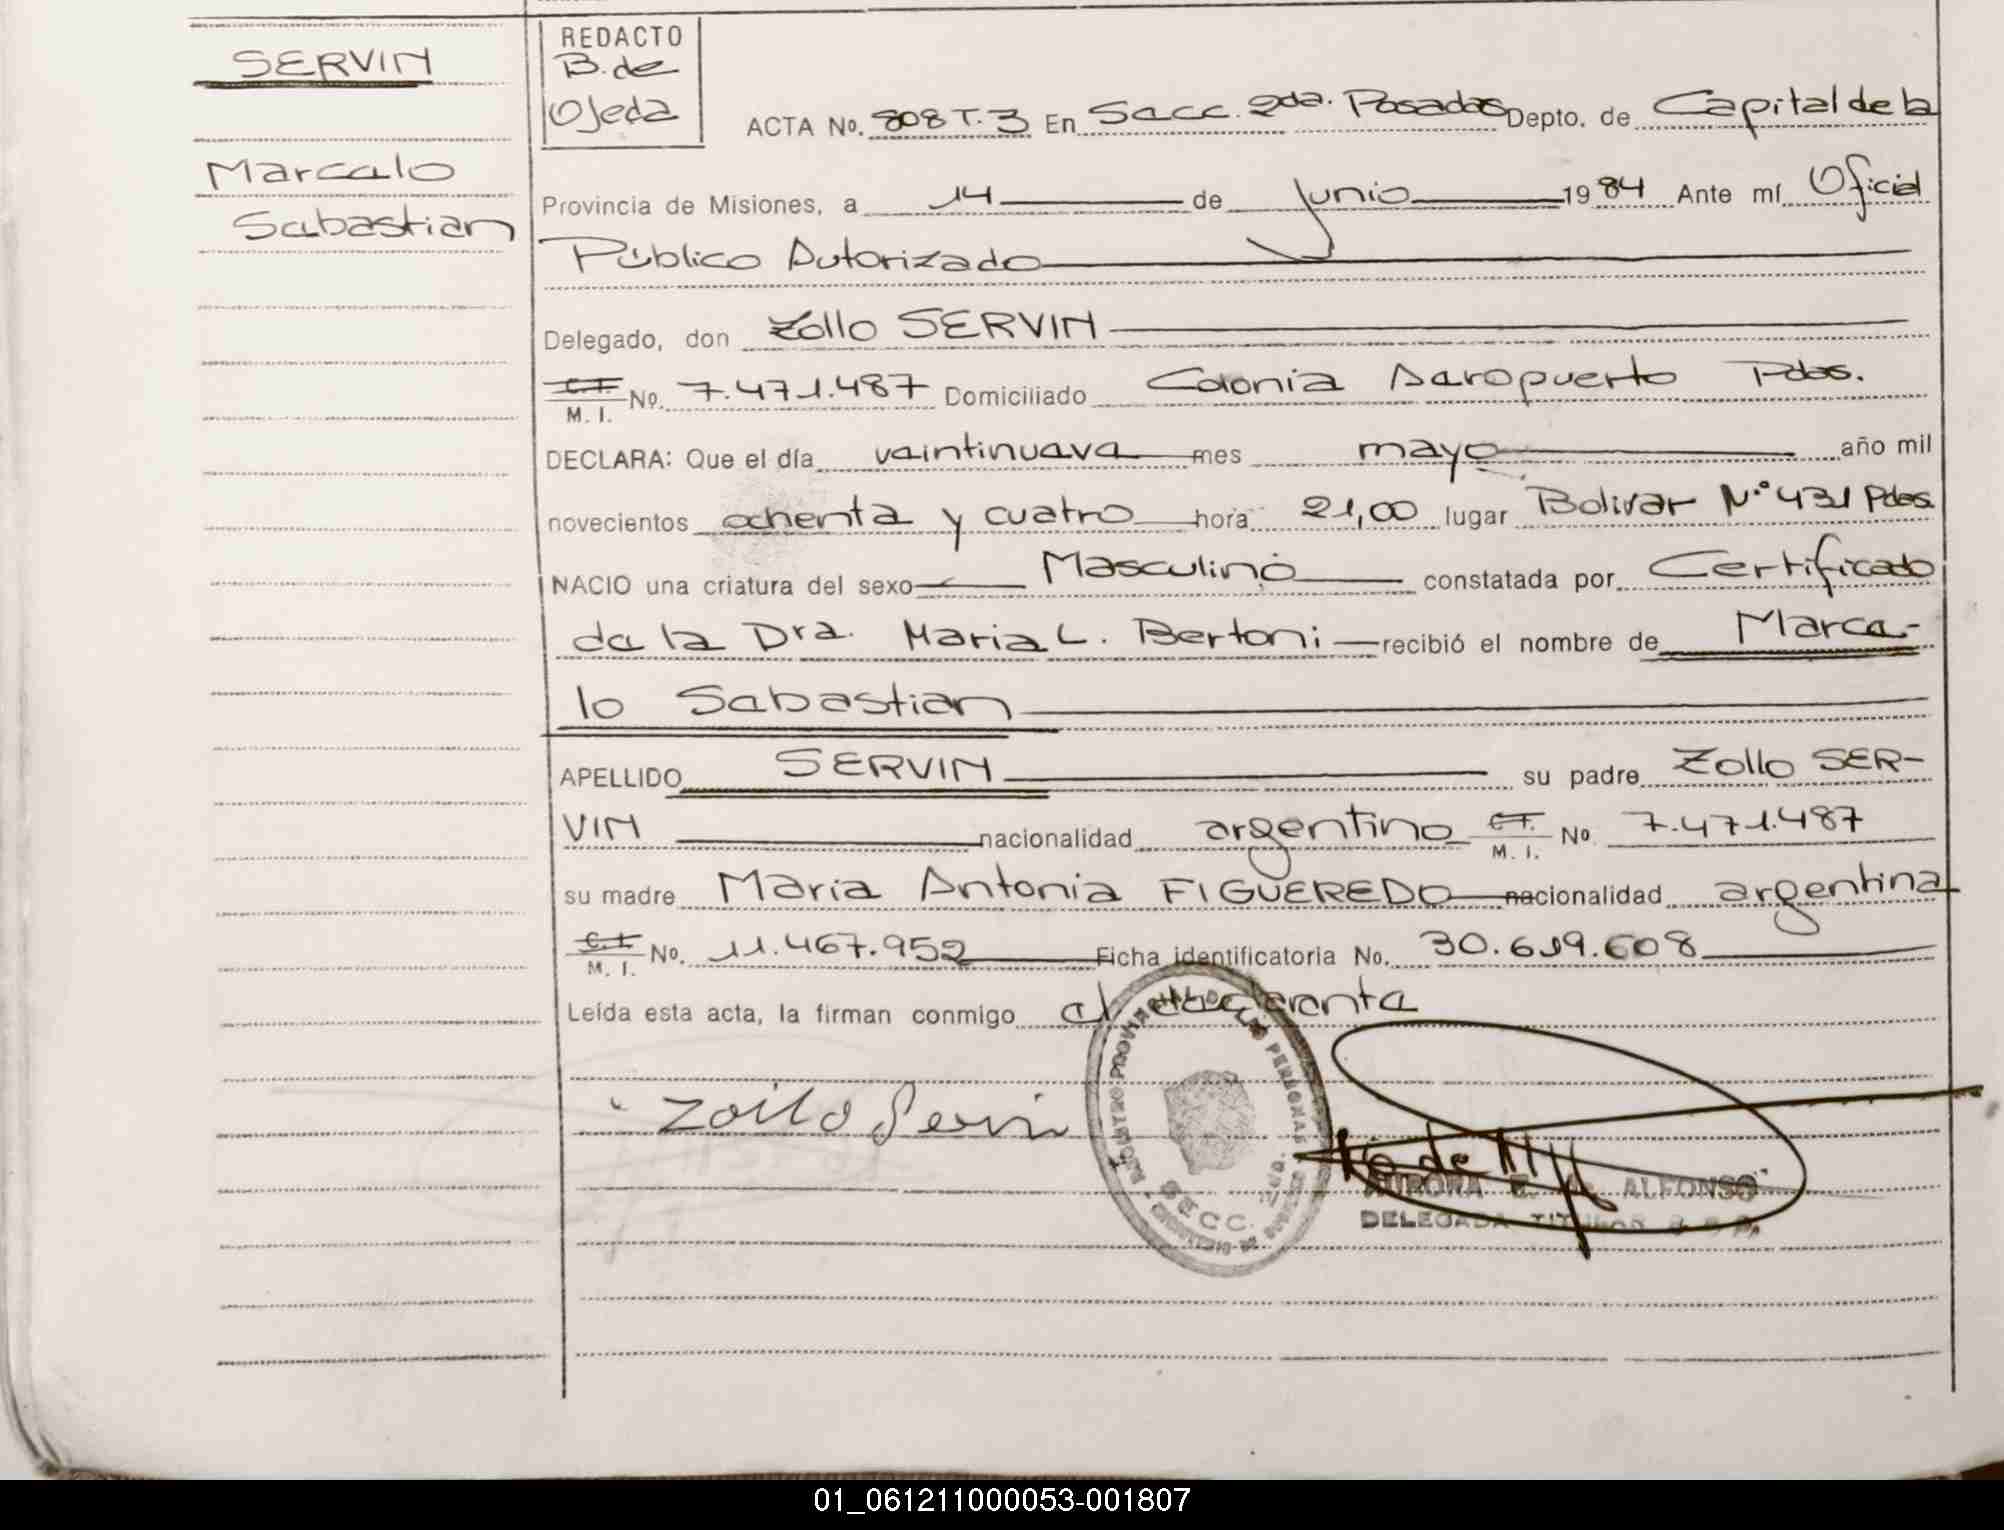 SERVIN
Marcelo
Sebastian
REDACTO
B. de
Ojeda
ACTA No. 808 T. 3 En Secc. 2da. Posadas Depto. de Capital de la
Provincia de Misiones, a 14 de Junio 1984 Ante mí Oficial
Público Autorizado
Delegado, don Zoilo SERVIN
C.I. M. I. No. 7.471.487 Domiciliado Colonia Aeropuerto Pdas.
DECLARA: Que el día veintinueve mes mayo año mil
novecientos ochenta y cuatro hora 21,00 lugar Bolivar N° 431 Pdas.
NACIO una criatura del sexo Masculino constatada por Certificado
de la Dra. Maria L. Bertoni recibió el nombre de Marce-
lo Sebastian
APELLIDO SERVIN su padre Zoilo SER-
VIN nacionalidad argentino C.I. M. I. No. 7.471.487
su madre Maria Antonia FIGUEREDO nacionalidad argentina
C.I. M. I. No. 11.467.952 Ficha identificatoria No. 30.619.608
Leída esta acta, la firman conmigo el declarante
Zoilo Servin
REGISTRO PROVINCIAL DE LAS PERSONAS
SECC. 2da.
AURORA E. ALFONSO
DELEGADA TITULAR
01_061211000053-001807